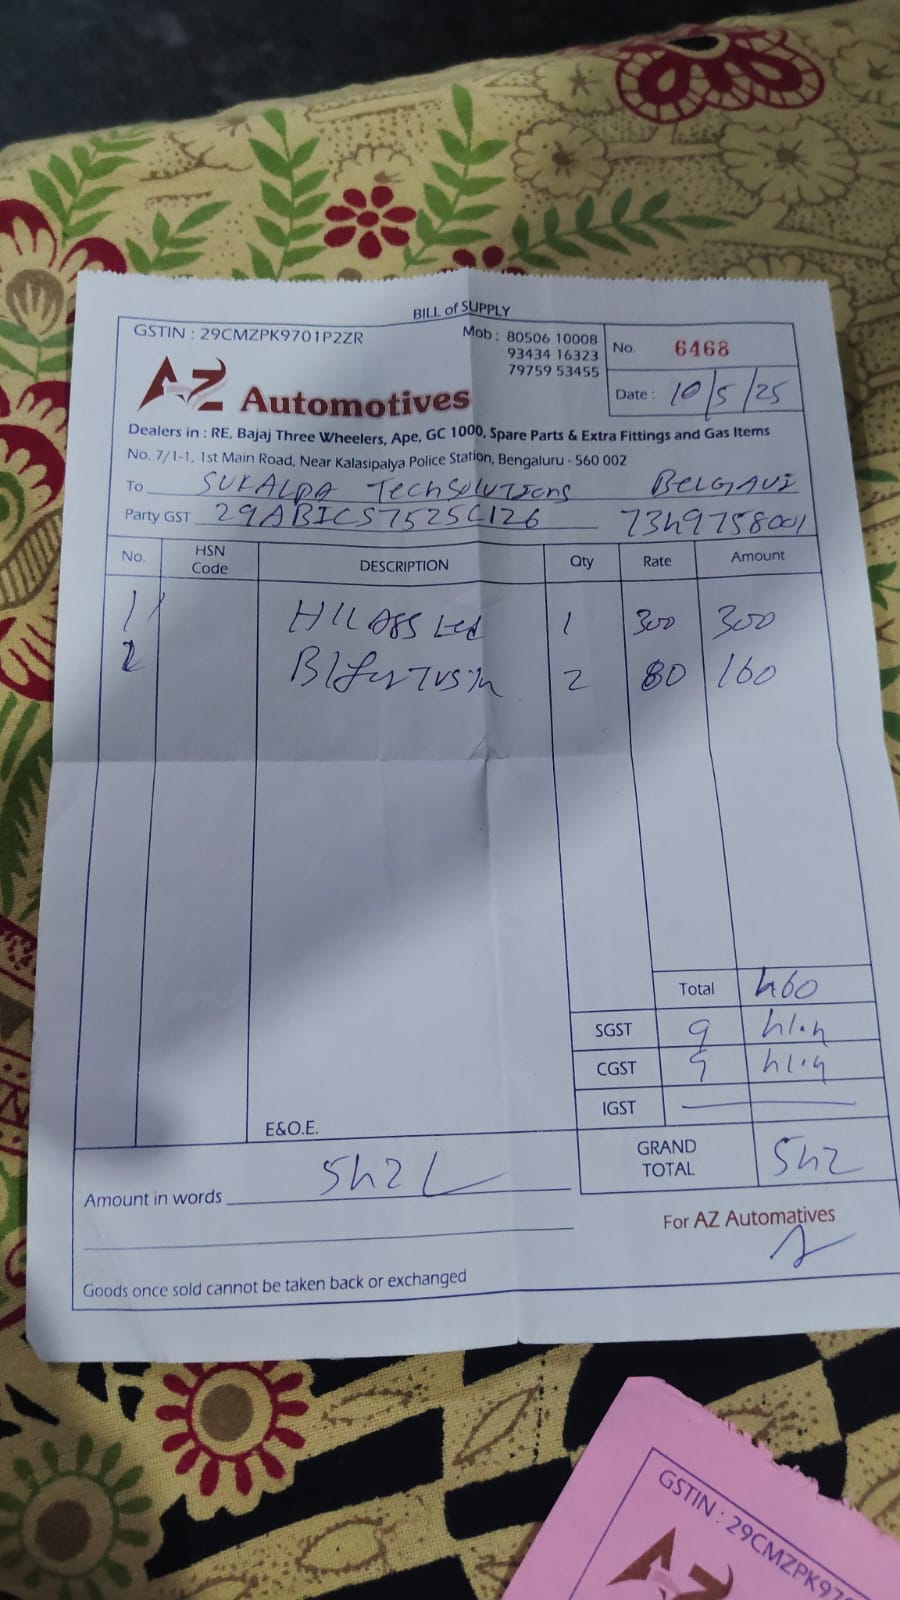 BILL of SUPPLY
GSTIN : 29CMZPK9701P2ZR
Mob : 80506 10008
93434 16323
79759 53455
No. 6468
Date : 10/5/25
AZ Automotives
Dealers in : RE, Bajaj Three Wheelers, Ape, GC 1000, Spare Parts & Extra Fittings and Gas Items
No. 7/1-1, 1st Main Road, Near Kalasipalya Police Station, Bengaluru - 560 002
To SUKALPA TechSolutions BELGAVI
Party GST 29ABICS7525C126 7349758001
No. HSN Code DESCRIPTION Qty Rate Amount
1 Led 1 300 300
2 2 80 160
Total 460
SGST 9 41.4
CGST 9 41.4
IGST
E&O.E.
GRAND TOTAL 542
Amount in words 542
For AZ Automatives
Goods once sold cannot be taken back or exchanged
GSTIN : 29CMZPK97
AZ